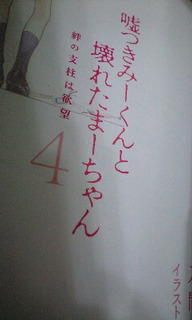 嘘つきみーくんと
壊れたまーちゃん
4
絆の支柱は欲望
イラスト